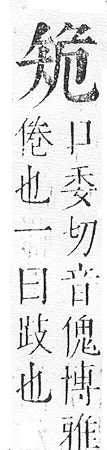 口委切音傀博雅
倦也一曰跂也